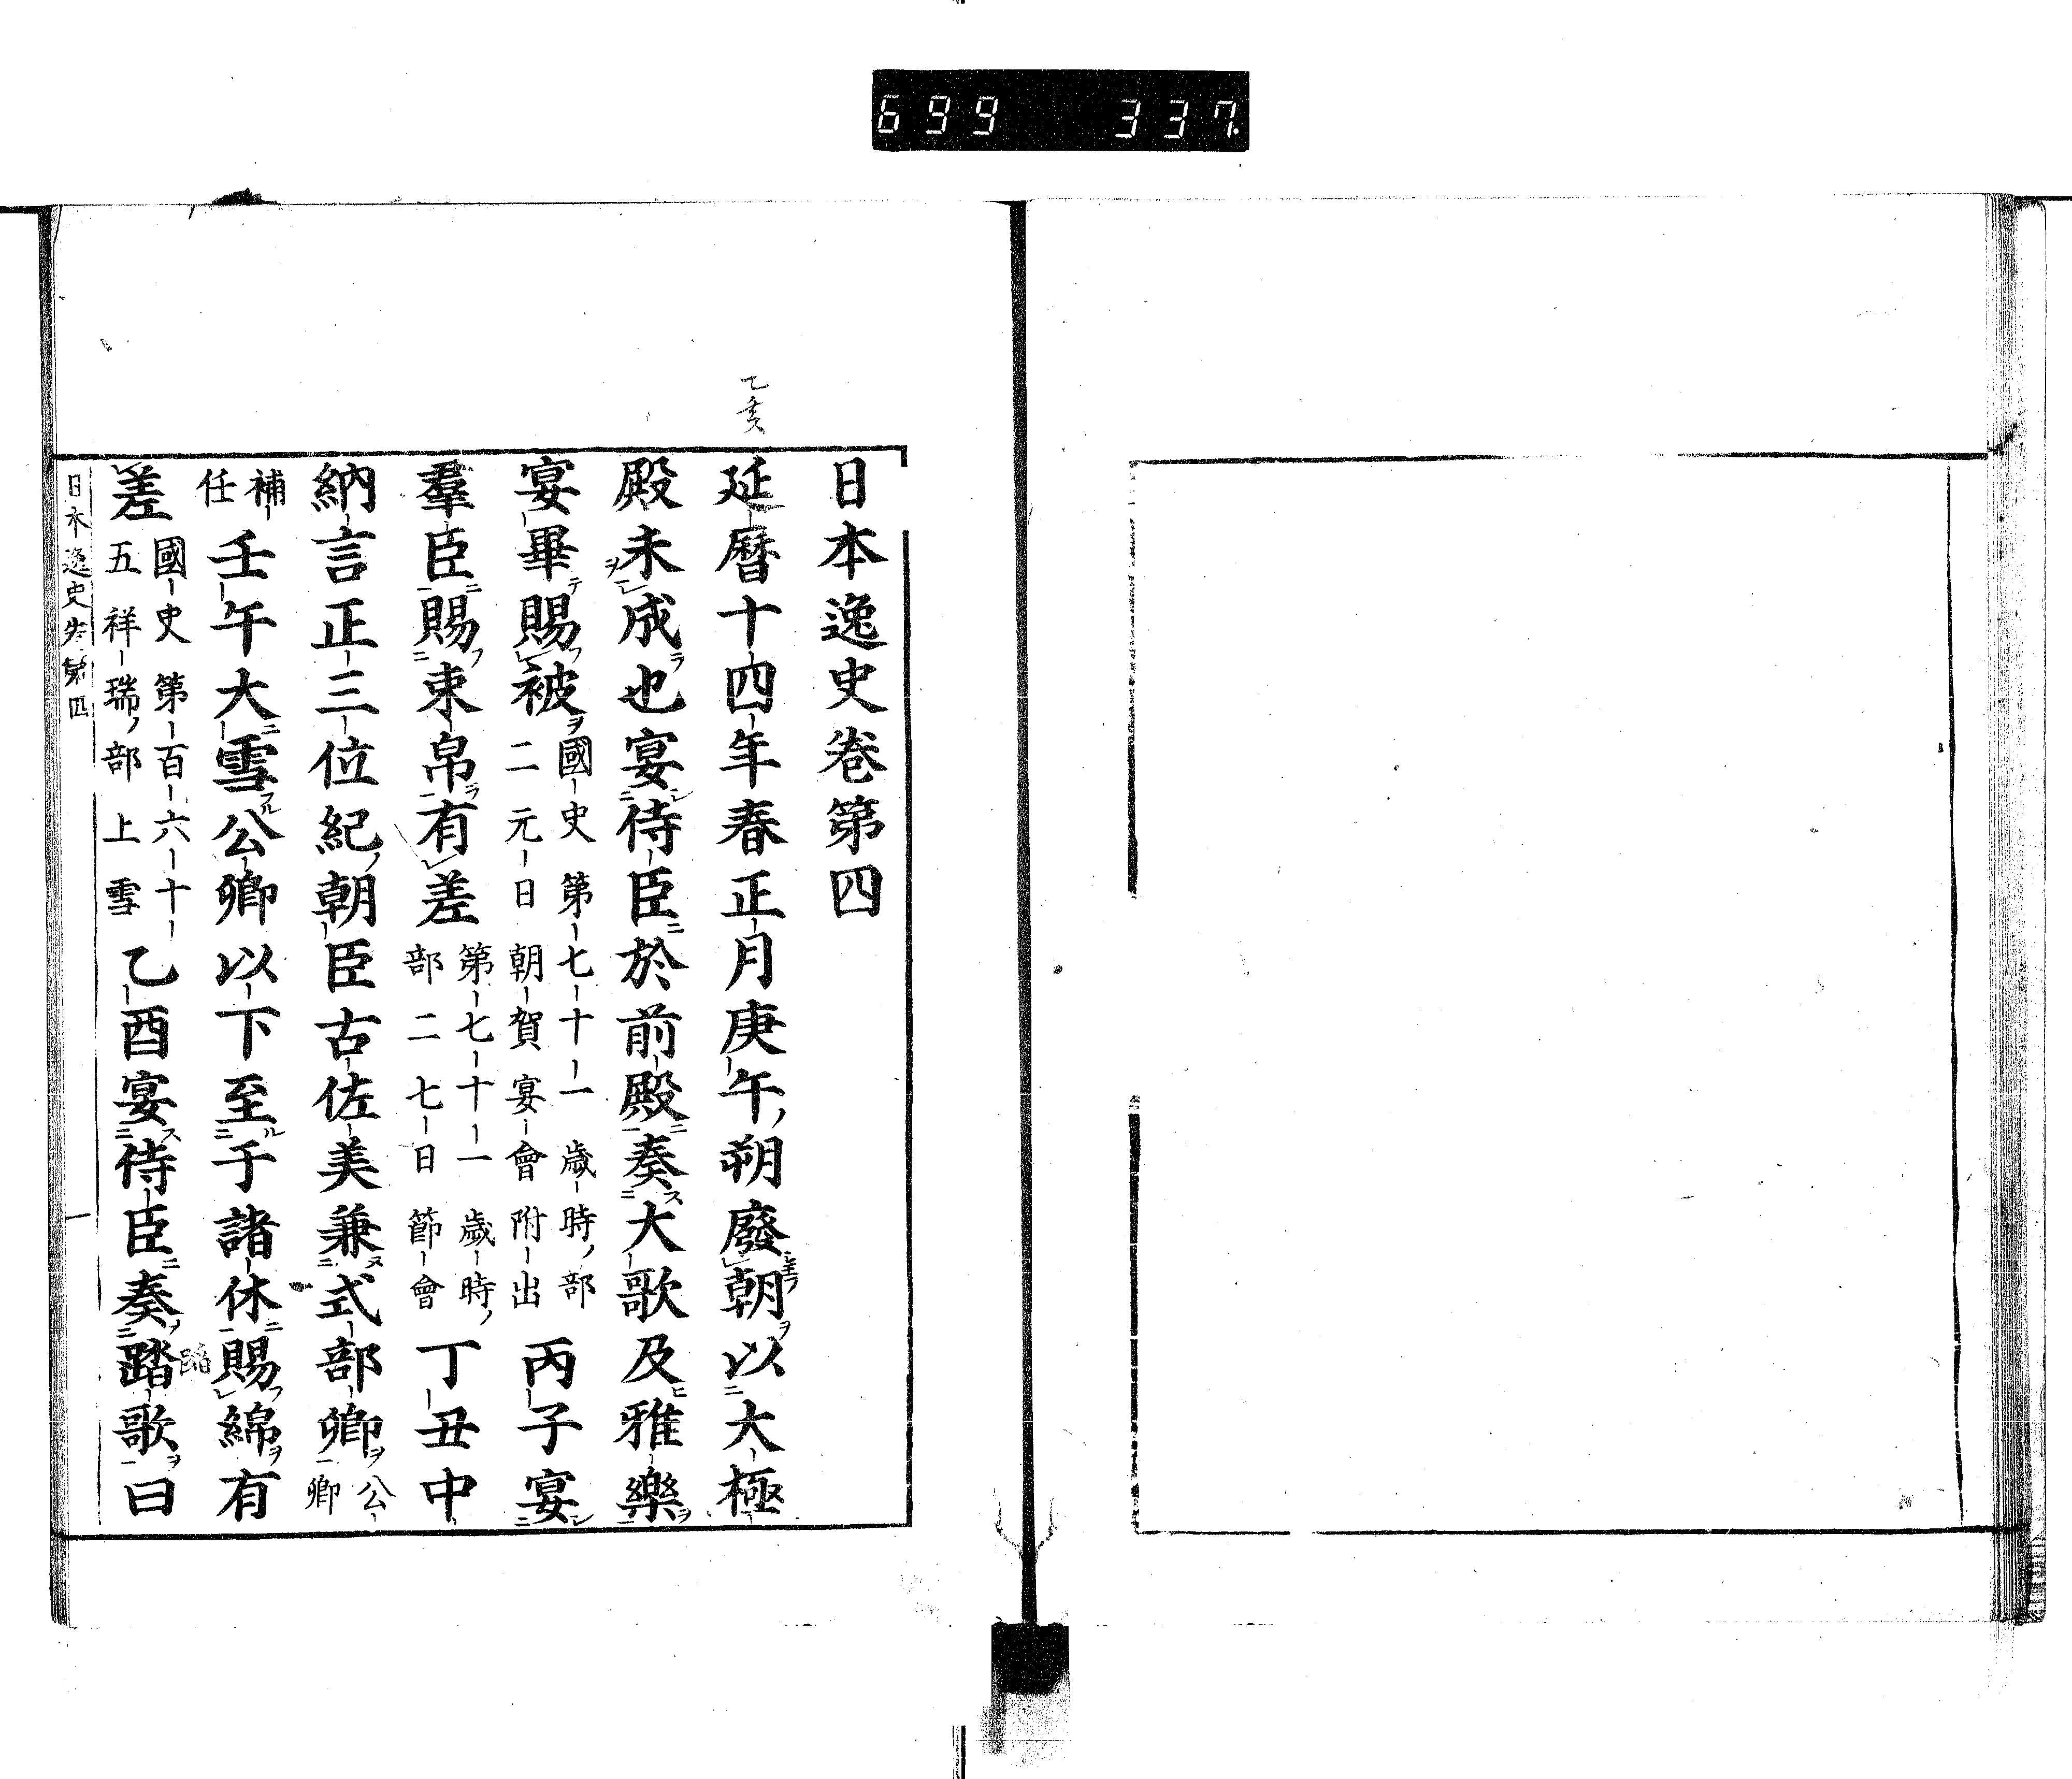 699 337
乙亥
日本逸史卷第四
延曆十四年春正月庚午朔廢朝以大極
殿未成也宴侍臣於前殿奏大歌及雅樂
宴畢賜被國史第七十一歲時部
二元日朝賀宴會附出丙子宴
羣臣賜束帛有差第七十一歲時
部二七日節會丁丑中
納言正三位紀朝臣古佐美兼式部卿公
卿
補
任壬午大雪公卿以下至于諸休賜綿有
差國史第百六十
五祥瑞部上雪乙酉宴侍臣奏踏歌曰
日本逸史卷第四
一